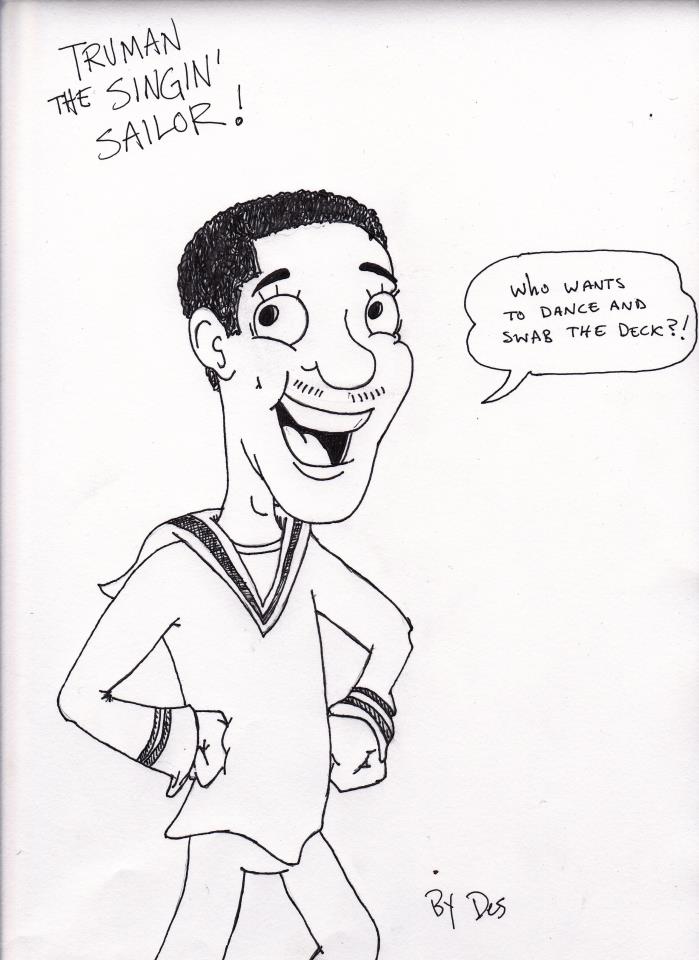 TRUMAN
THE SINGIN'
SAILOR!
WHO WANTS
TO DANCE AND
SWAB THE DECK?!
BY DES